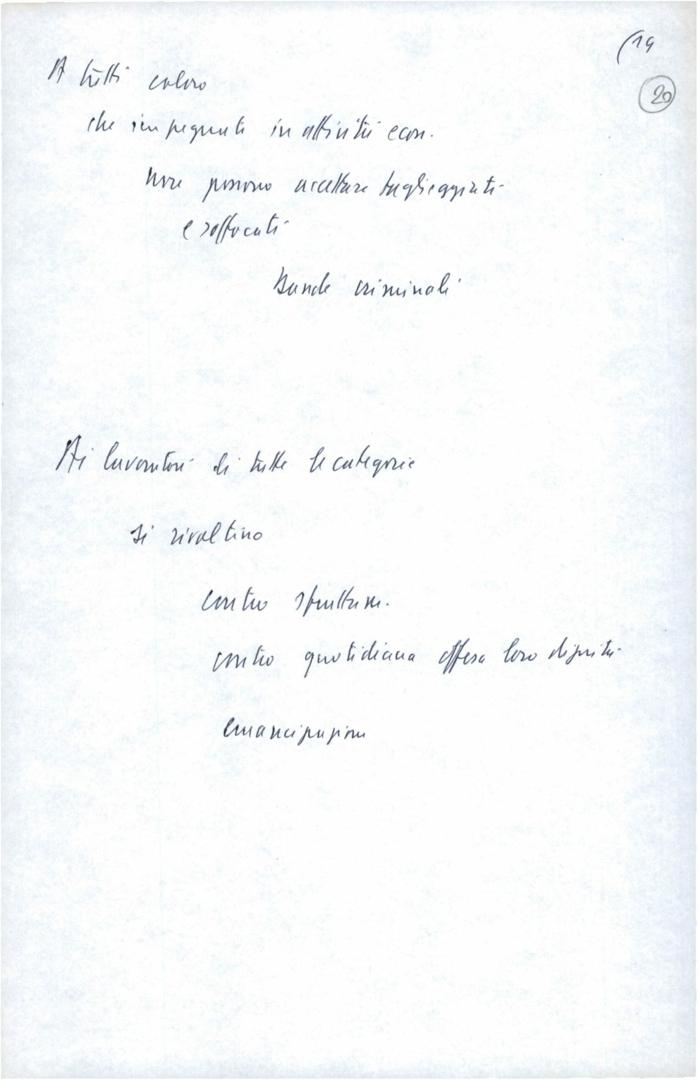 (19
20
A tutti coloro
che impegnati in attività econ.
non possono accettare taglieggiati
e soffocati
Bande criminali
Ai lavoratori di tutte le categorie
si rivoltino
contro sfruttam.
contro quotidiana offesa loro dignità
emancipazione